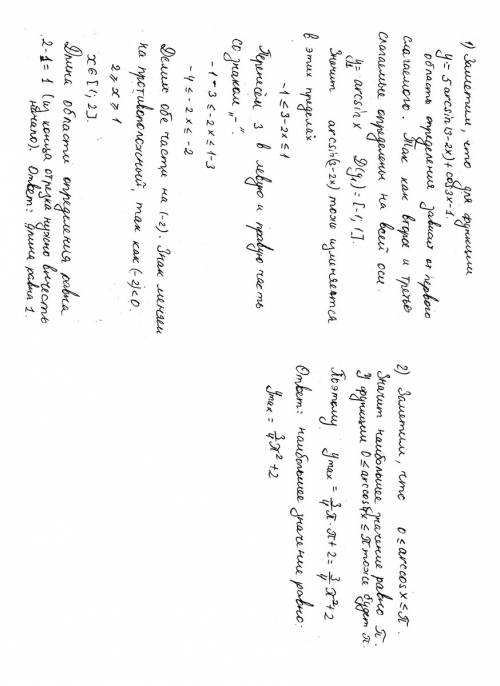 1) Заметим, что для функции
y = 5 arcsin(3-2x) + cos3x - 1.
область определения зависит от первого
слагаемого. Так как второе и третье
слагаемые определены на всей оси.
y₁ = arcsin x D(y₁) = [-1, 1].
Значит arcsin(3-2x) тоже изменяется
в этих пределах
-1 ≤ 3-2x ≤ 1
Перенесём 3 в левую и правую часть
со знаком „-“.
-1 - 3 ≤ -2x ≤ 1-3
-4 ≤ -2x ≤ -2
Делим обе части на (-2). Знак меняем
на противоположный, так как (-2)<0.
2 ≥ x ≥ 1
x ∈ [1; 2].
Длина области определения равна
2-1 = 1 (из конца отрезка нужно вычесть
начало). Ответ: длина равна 1.
2) Заметим, что 0 ≤ arccos x ≤ π.
Значит наибольшее значение равно π.
У функции 0 ≤ arccos4x ≤ π тоже будет π.
Поэтому y max = 3/4 π · π + 2 = 3/4 π² + 2
Ответ: наибольшее значение равно:
y max = 3/4 π² + 2